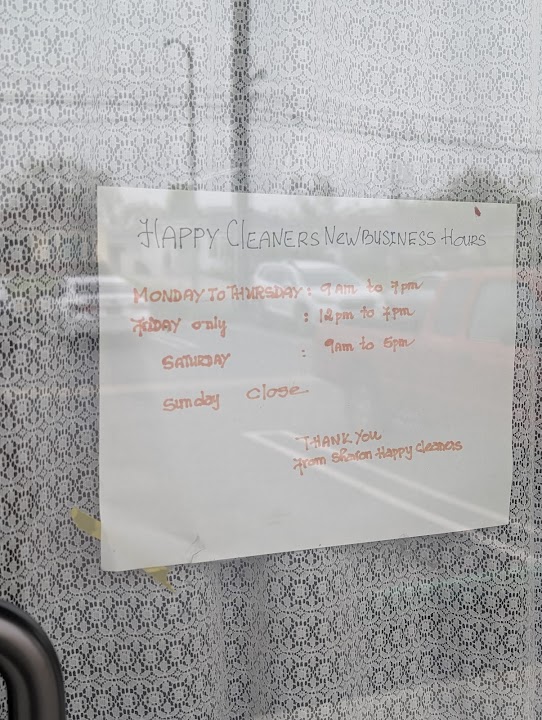 HAPPY CLEANERS NEW BUSINESS HOURS
MONDAY TO THURSDAY : 9am to 7pm
FRIDAY only : 12pm to 7pm
SATURDAY : 9am to 5pm
Sunday Close
THANK YOU
From Sharon Happy Cleaners